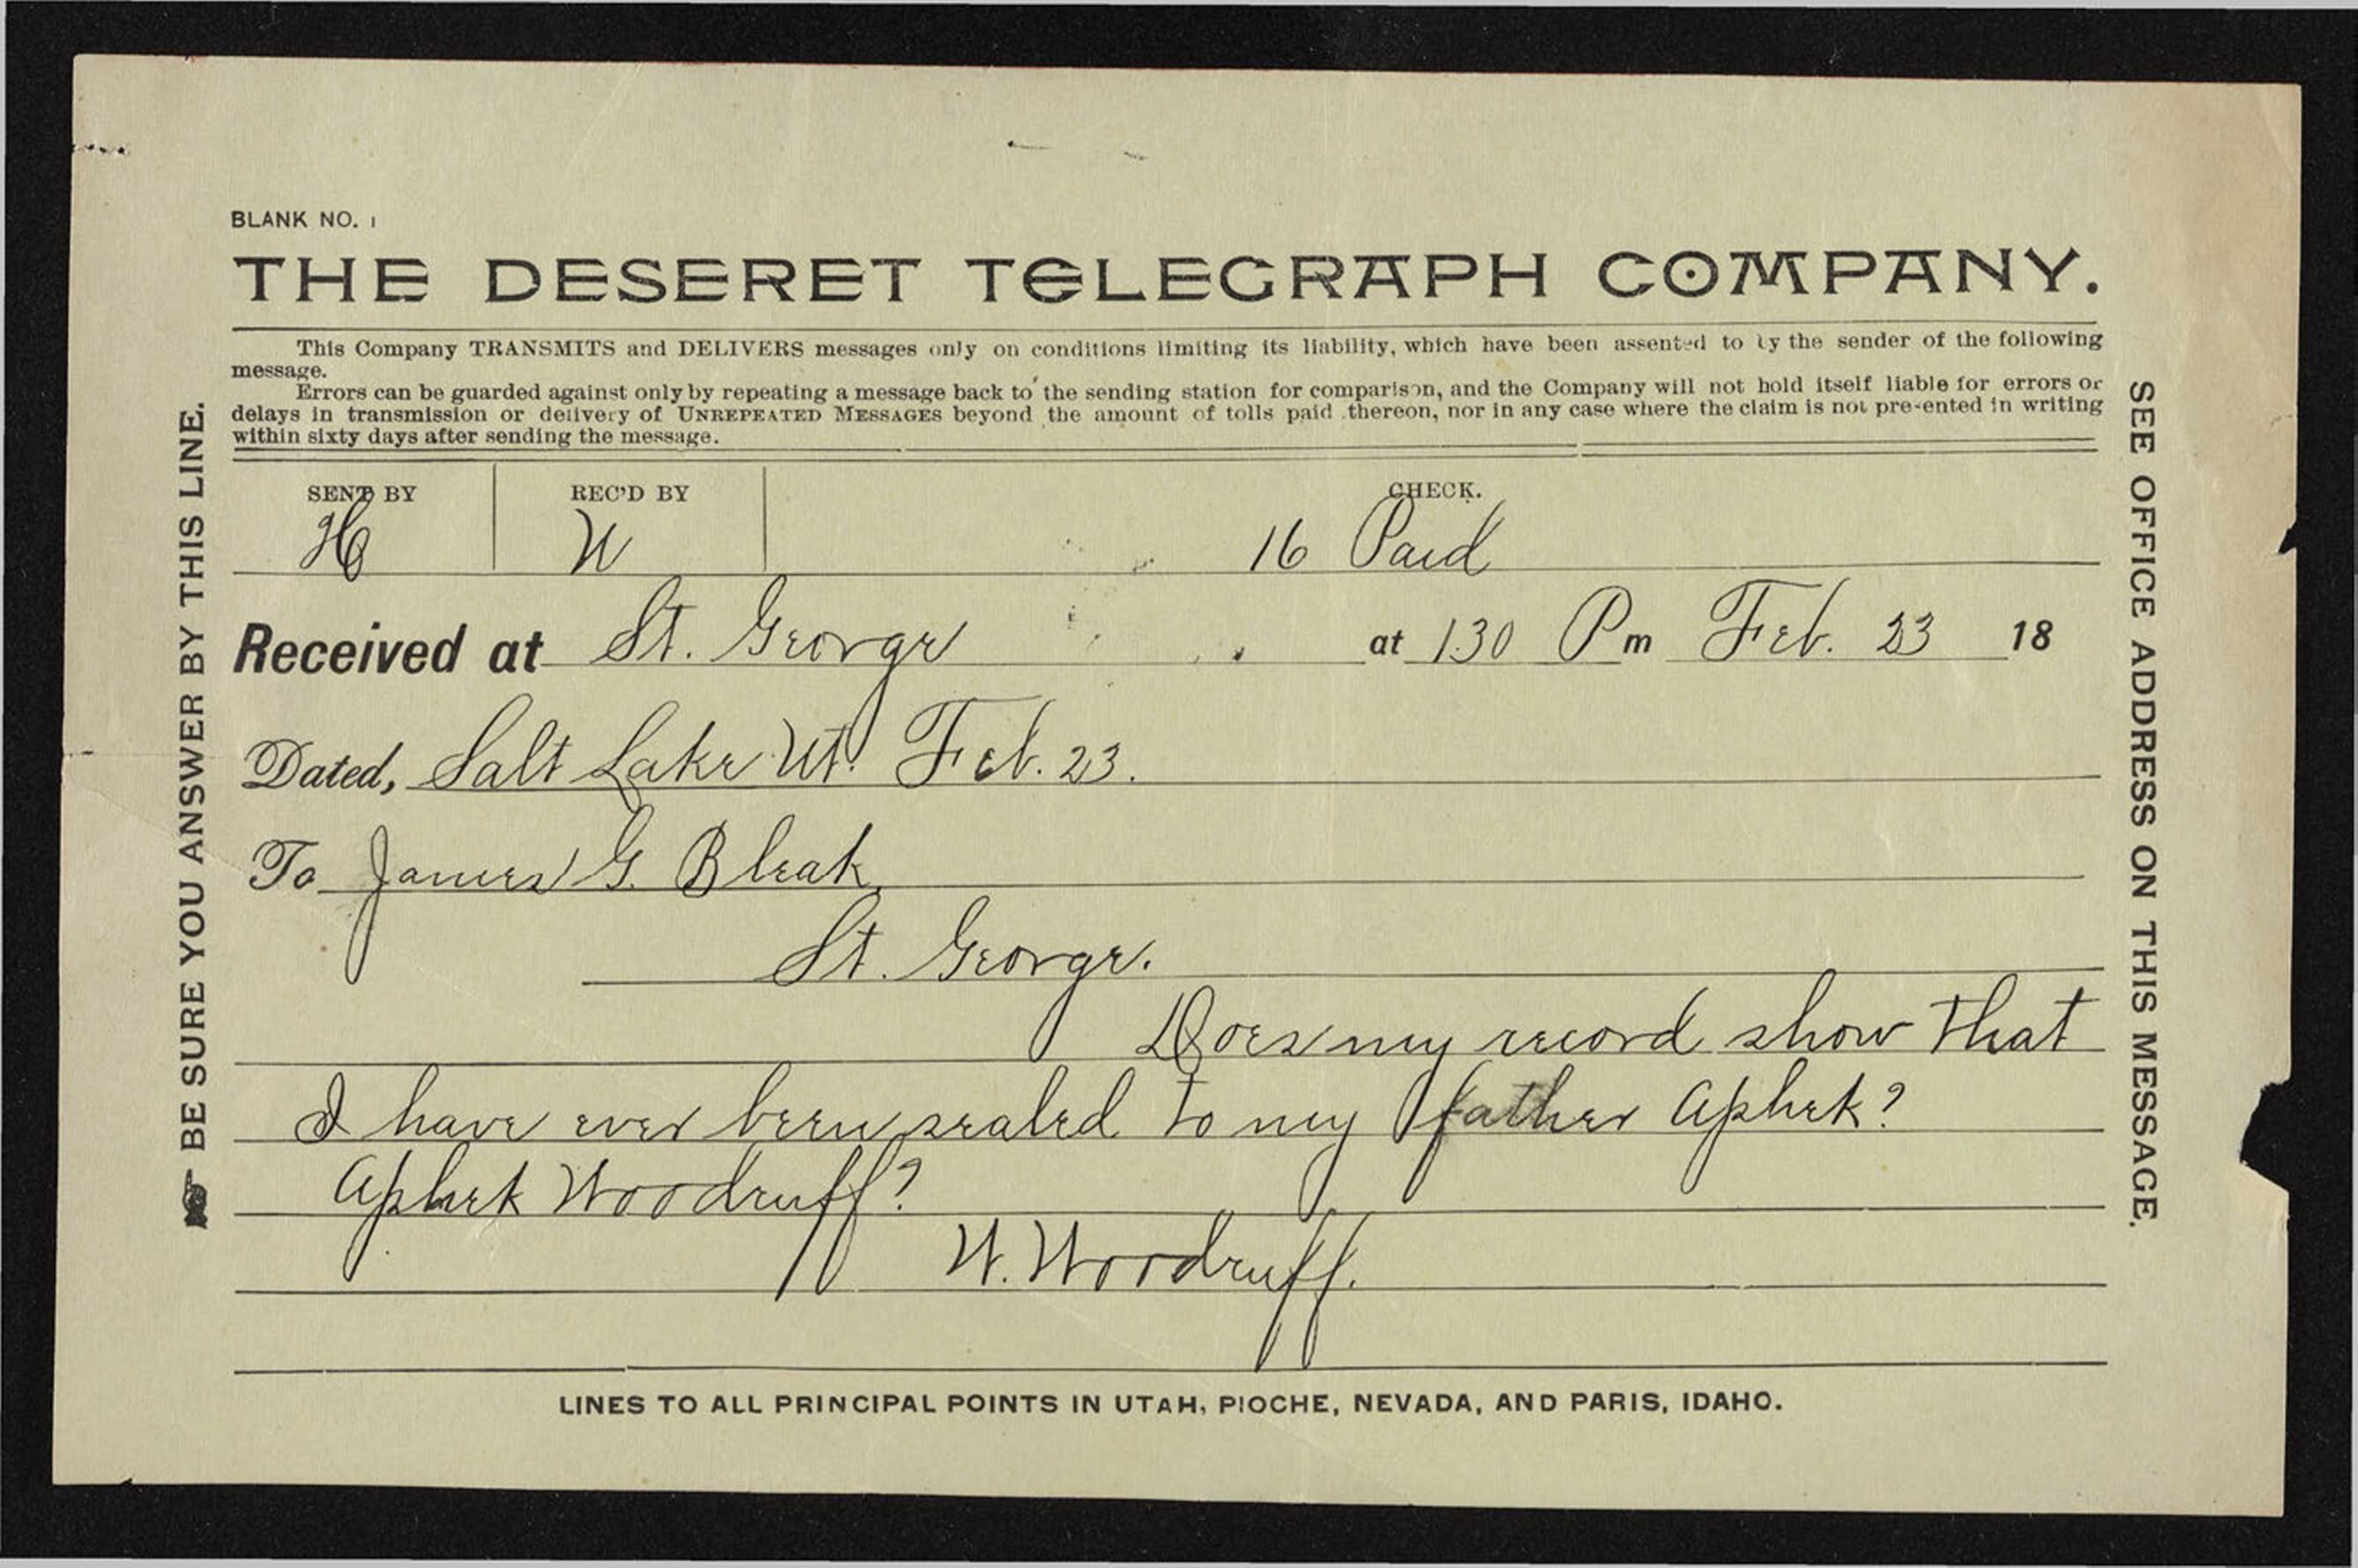 BLANK NO. 1
THE DESERET TELEGRAPH COMPANY.
This Company TRANSMITS and DELIVERS messages only on conditions limiting its liability, which have been assented to by the sender of the following
message.
Errors can be guarded against only by repeating a message back to the sending station for comparison, and the Company will not hold itself liable for errors or
delays in transmission or delivery of UNREPEATED MESSAGES beyond the amount of tolls paid thereon, nor in any case where the claim is not pre-ented in writing
within sixty days after sending the message.
SENT BY REC'D BY CHECK.
W 16 Paid
Received at St. George at 1.30 Pm Feb. 23 18
Dated, Salt Lake Ut. Feb. 23.
To James G. Bleak,
St. George.
Does my record show that
I have ever been sealed to my father Aphek?
Aphek Woodruff?
W. Woodruff.
LINES TO ALL PRINCIPAL POINTS IN UTAH, PIOCHE, NEVADA, AND PARIS, IDAHO.
BE SURE YOU ANSWER BY THIS LINE.
SEE OFFICE ADDRESS ON THIS MESSAGE.